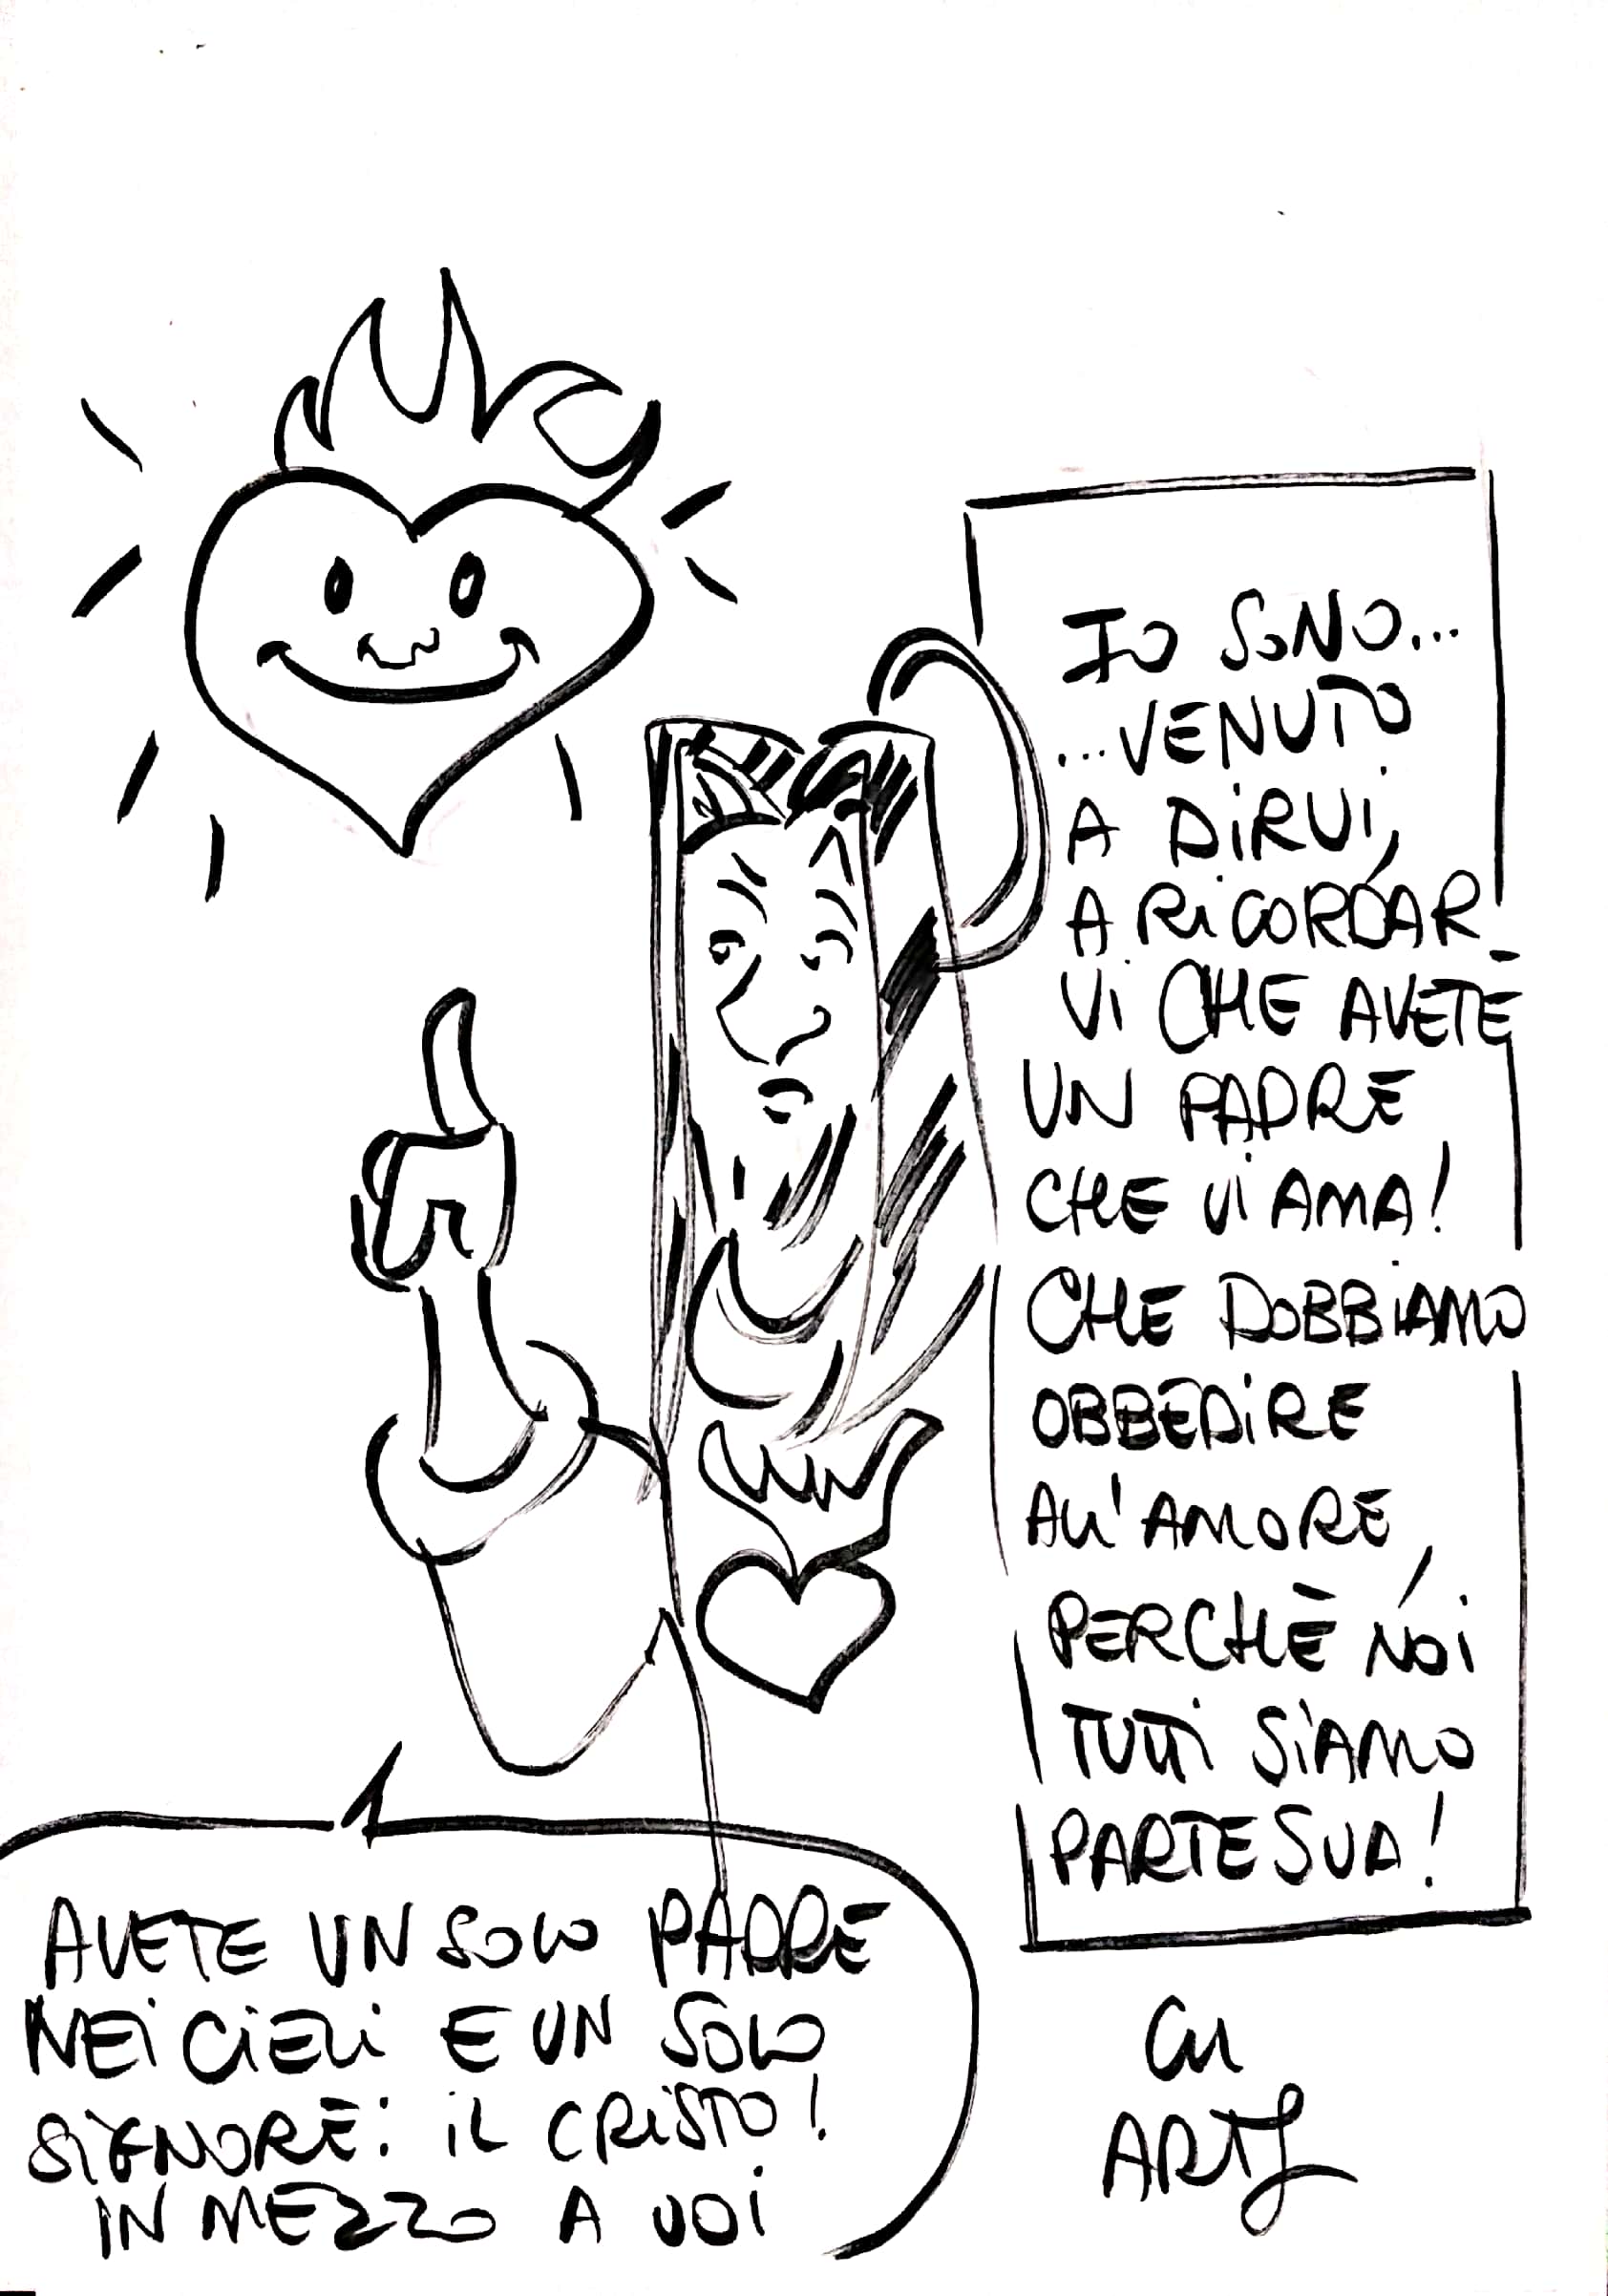 IO SONO...
...VENUTO
A DIRVI,
A RICORDAR-
VI CHE AVETE
UN PADRE
CHE VI AMA!
CHE DOBBIAMO
OBBEDIRE
ALL'AMORE,
PERCHÈ NOI
TUTTI SIAMO
PARTE SUA!
AVETE UN SOLO PADRE
NEI CIELI E UN SOLO
SIGNORE: IL CRISTO!
IN MEZZO A VOI
ARTS